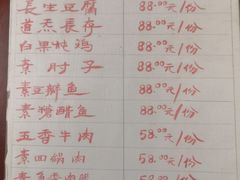 長生豆腐 88.00元/份
道炁長存 88.00元/份
白果炖鸡 88.00元/份
素肘子 88.00元/份
素豆瓣鱼 88.00元/份
素糖醋鱼 88.00元/份
五香牛肉 58.00元/份
素回锅肉 58.00元/份
58.00元/份